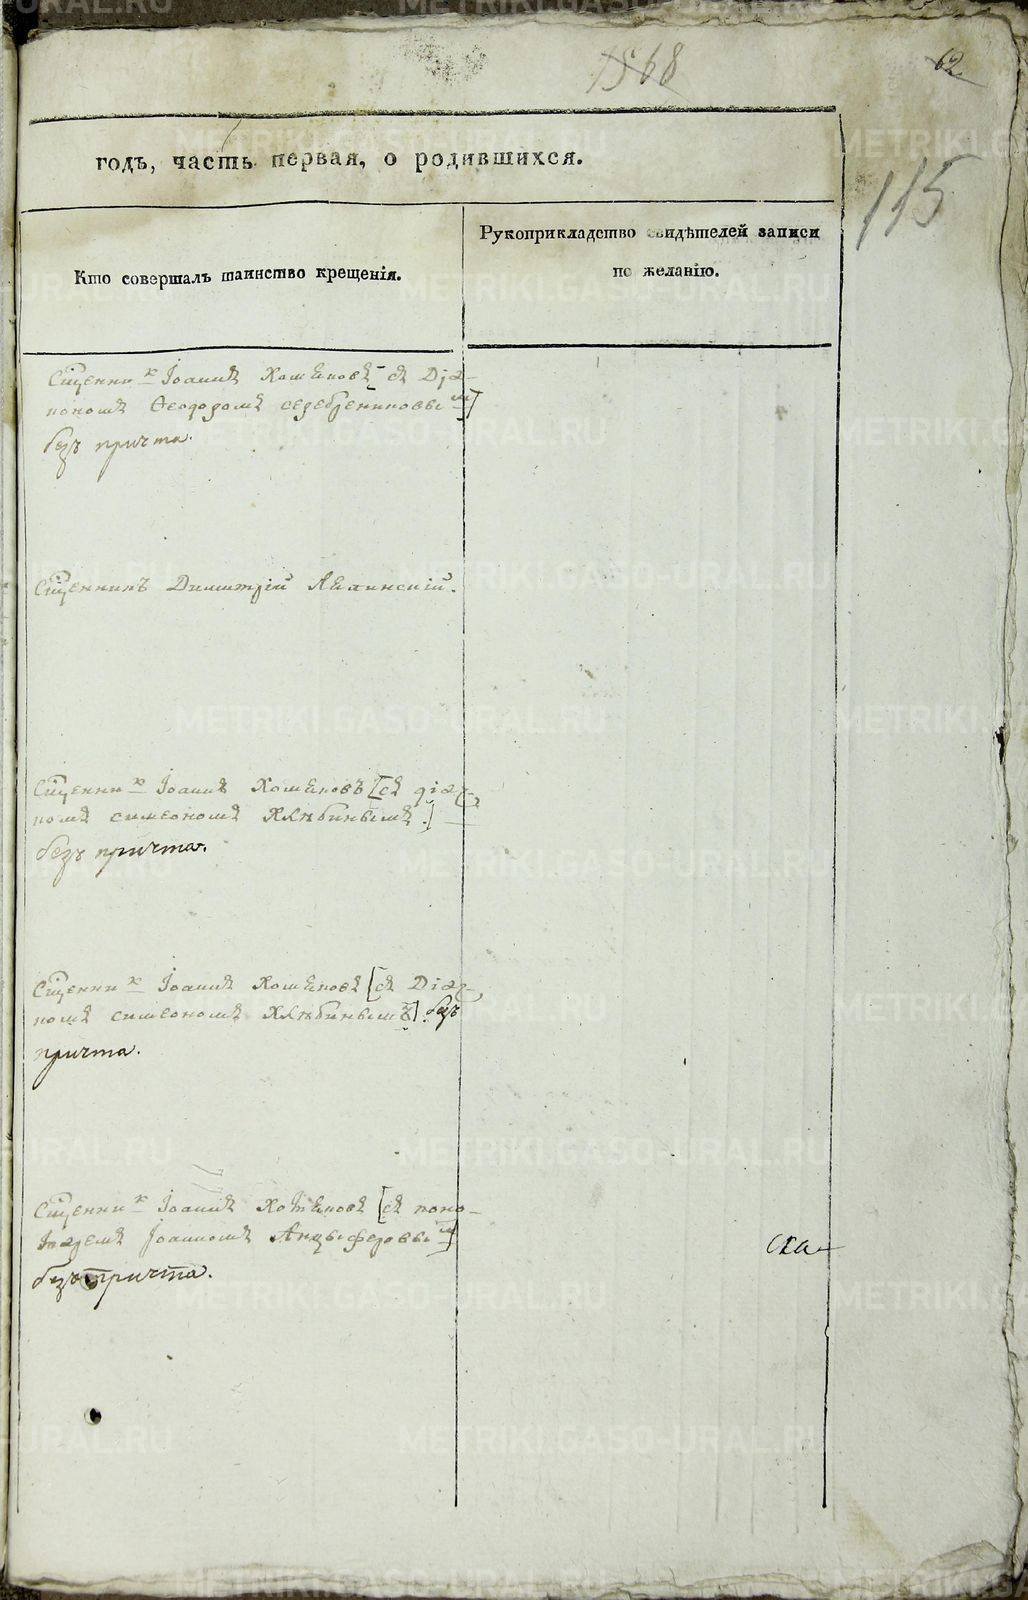 1568
62
115
годъ, часть первая, о родившихся.
Кто совершалъ таинство крещенія.
Рукоприкладство свидѣтелей записи
по желанію.
Сщенник Іоаннъ Хотѣновъ [съ Діа-
кономъ Ѳеодоромъ Серебрениковым]
безъ причта.
Сщенникъ Димитрій
Сщенник Іоаннъ Хотѣновъ [съ діа-
кономъ Симеономъ Хлѣбинымъ.]
безъ причта.
Сщенник Іоаннъ Хотѣновъ [съ Діа-
кономъ Симеономъ Хлѣбинымъ] безъ
причта.
Сщенник Іоаннъ Хотѣновъ [съ поно-
маремъ Іоанномъ Анцыферовым]
безъ причта.
METRIKI.GASO-URAL.RU